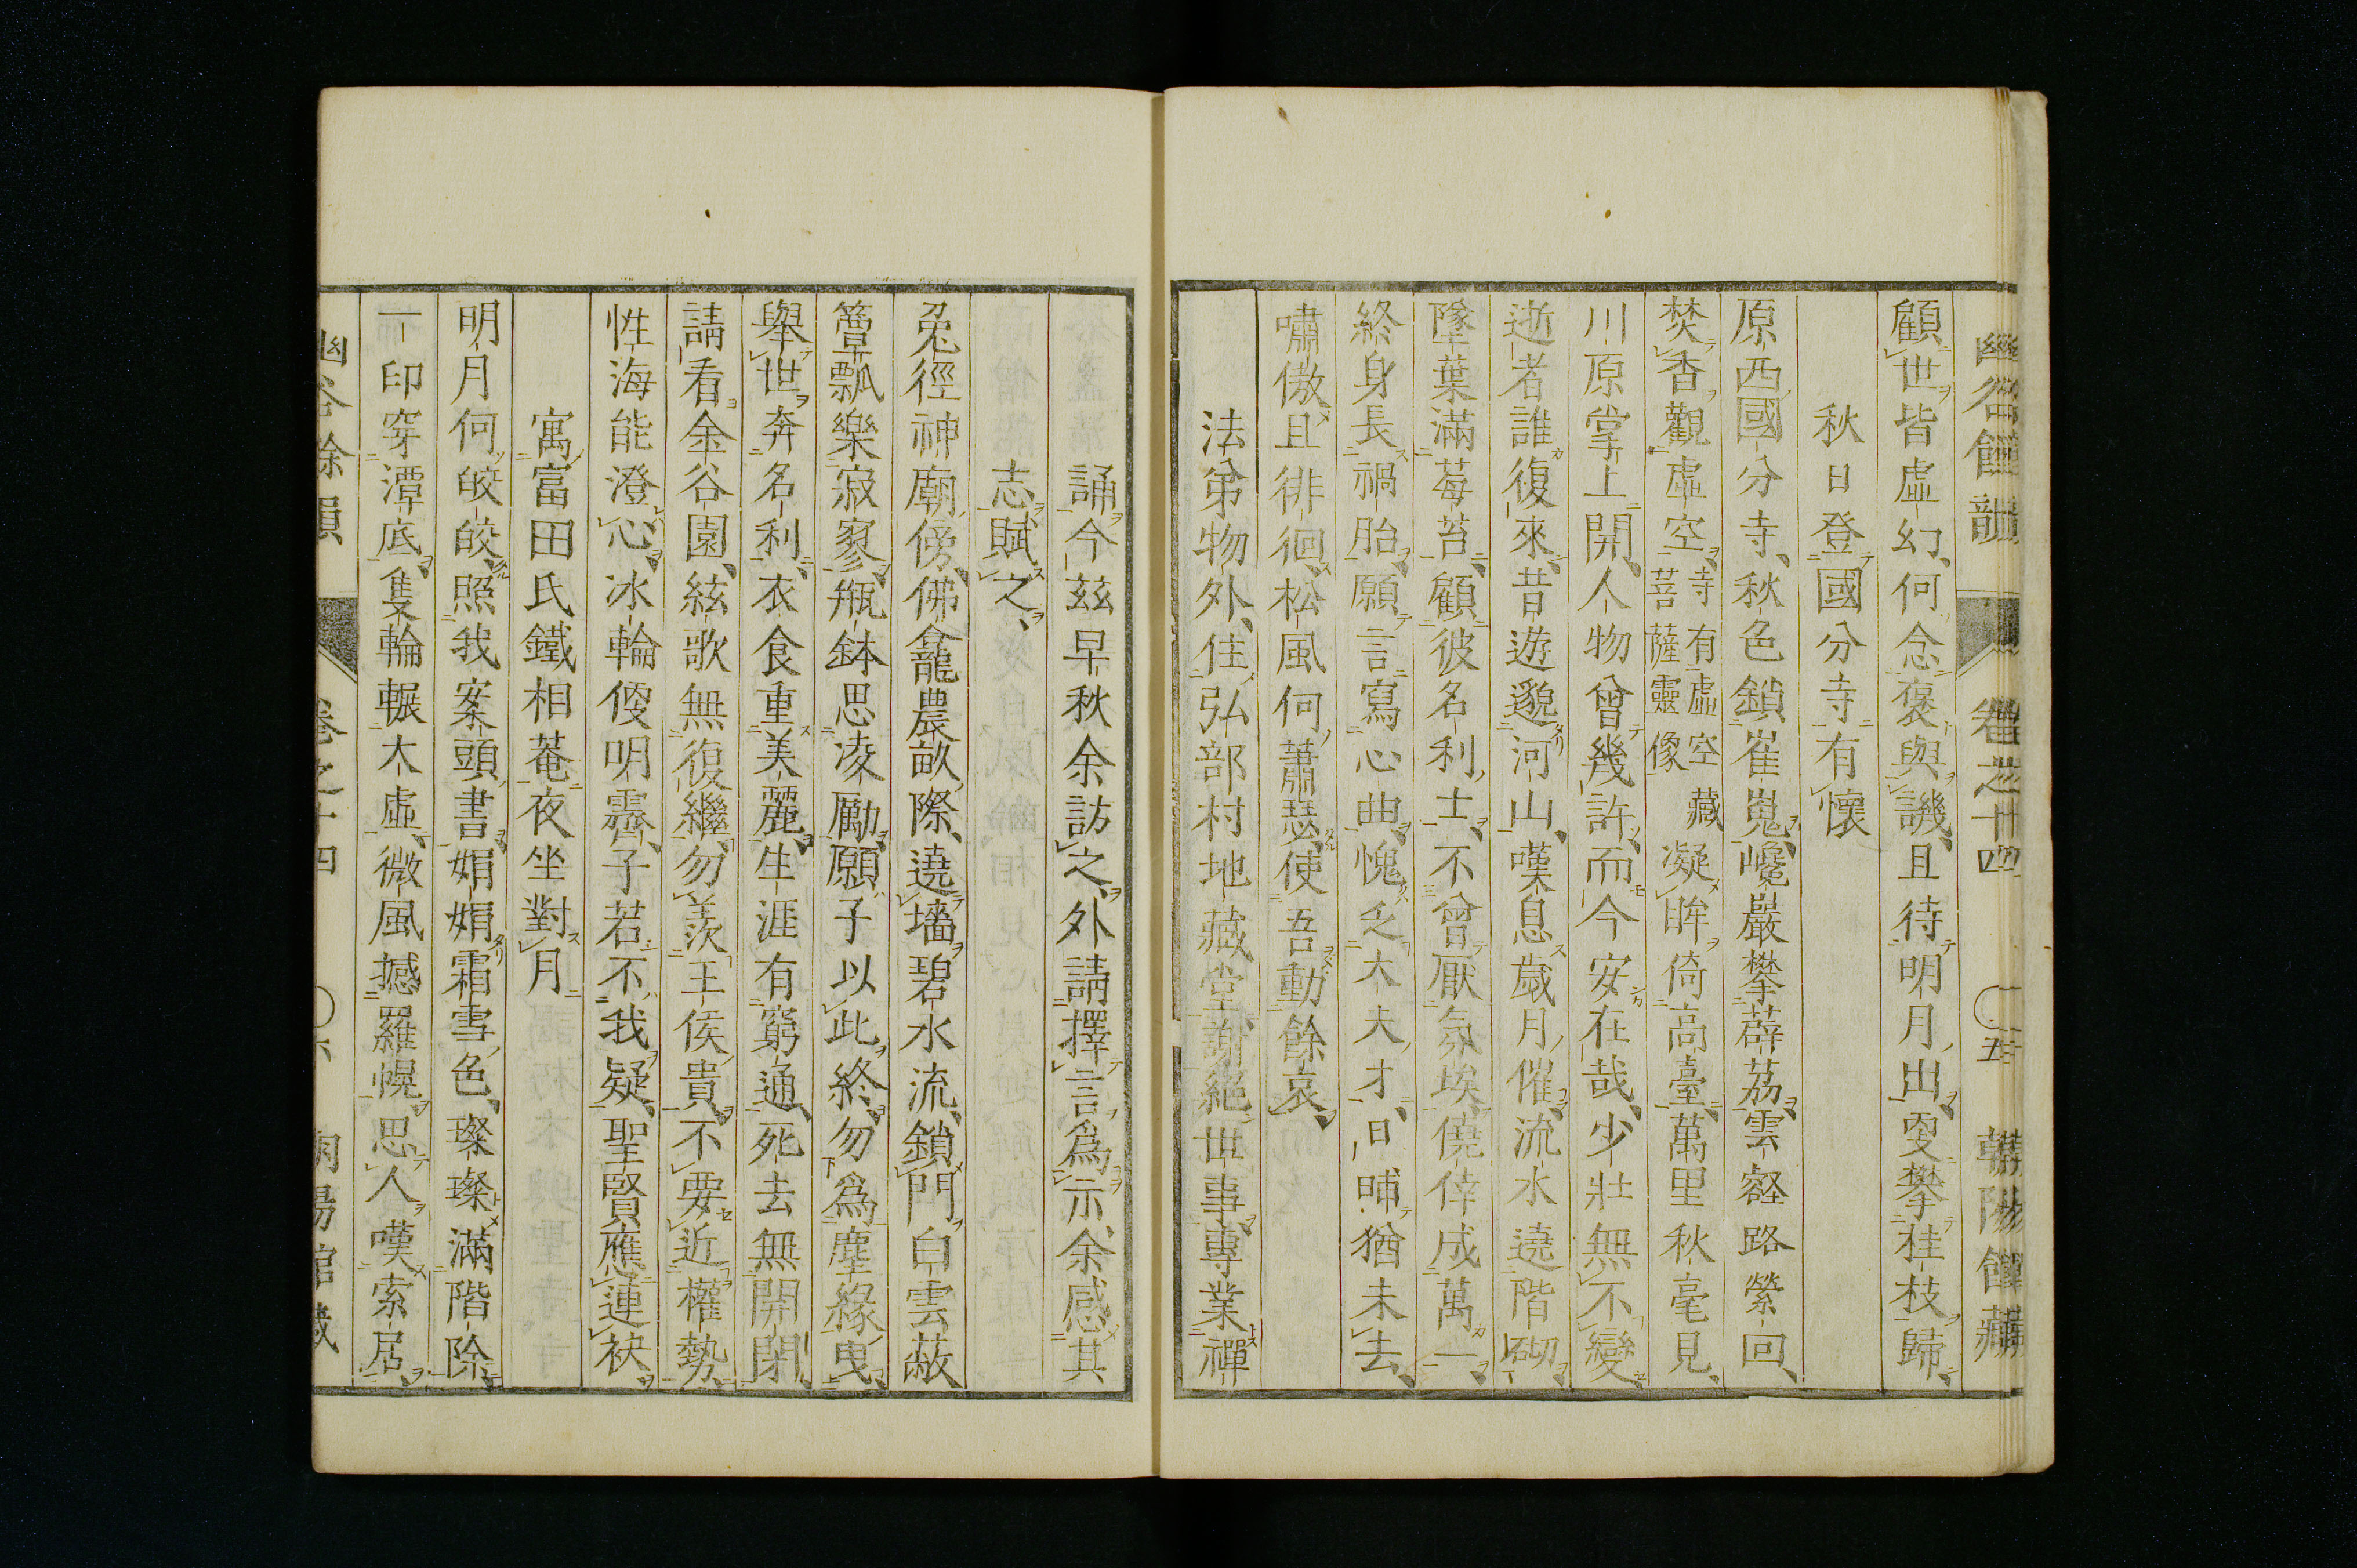 幽谷餘韻 卷之十四 〇五 朝陽館藏
顧世皆虛幻、何念褒與譏、且待明月出、更攀桂枝歸、
秋日登國分寺有懷
原西國分寺、秋色鎖崔嵬、巉巖攀薜荔、雲磴路縈回、
焚香觀虛空、寺有虛空藏菩薩靈像凝眸倚高臺、萬里秋毫見、
川原掌上開、人物曾幾許、而今安在哉、少壯無不變、
逝者誰復來、昔遊邈河山、嘆息歲月催、流水遶階砌、
墜葉滿莓苔、顧彼名利士、不曾厭氛埃、僥倖成萬一、
終身長禍胎、願言寫心曲、愧乏大夫才、日晡猶未去、
嘯傲且徘徊、松風何蕭瑟、使吾動餘哀、
法弟物外、住弘部村地藏堂、謝絕世事、專業禪
誦、今茲早秋余訪之、外請擇言爲示、余感其
志、賦之、
兔徑神廟傍、佛龕農畝際、遶墻碧水流、鎖門白雲蔽、
簞瓢樂寂寥、瓶鉢思凌勵、願子以此終、勿爲塵緣曳、
舉世奔名利、衣食重美麗、生涯有窮通、死去無開閉、
請看金谷園、絃歌無復繼、勿羨王侯貴、不要近權勢、
性海能澄心、冰輪便明霽、子若不我疑、聖賢應連袂、
寓富田氏鐵相菴夜坐對月
明月何皎皎、照我案頭書、娟娟霜雪色、璨璨滿階除、
一印穿潭底、隻輪輾大虛、微風撼羅幌、思人嘆索居、
幽谷餘韻 卷之十四 〇六 朝陽館藏